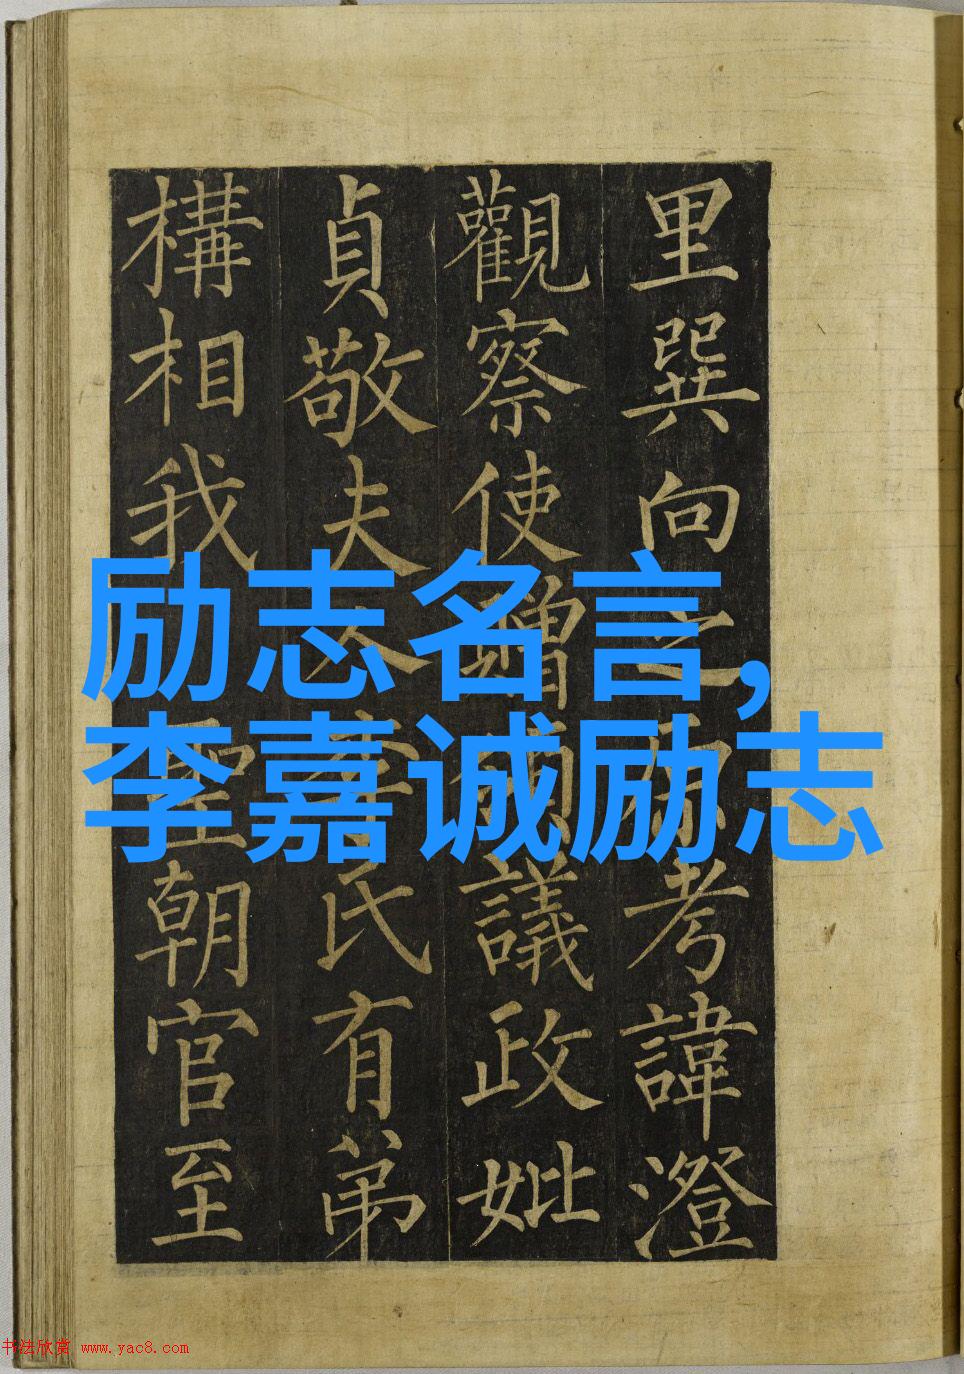 励志名言,
李嘉诚励志
里巽向之原考諱澄
觀察使贈領議政妣
貞敬夫人李氏有弟
構相我聖朝官至
书法欣赏 www.yac8.com